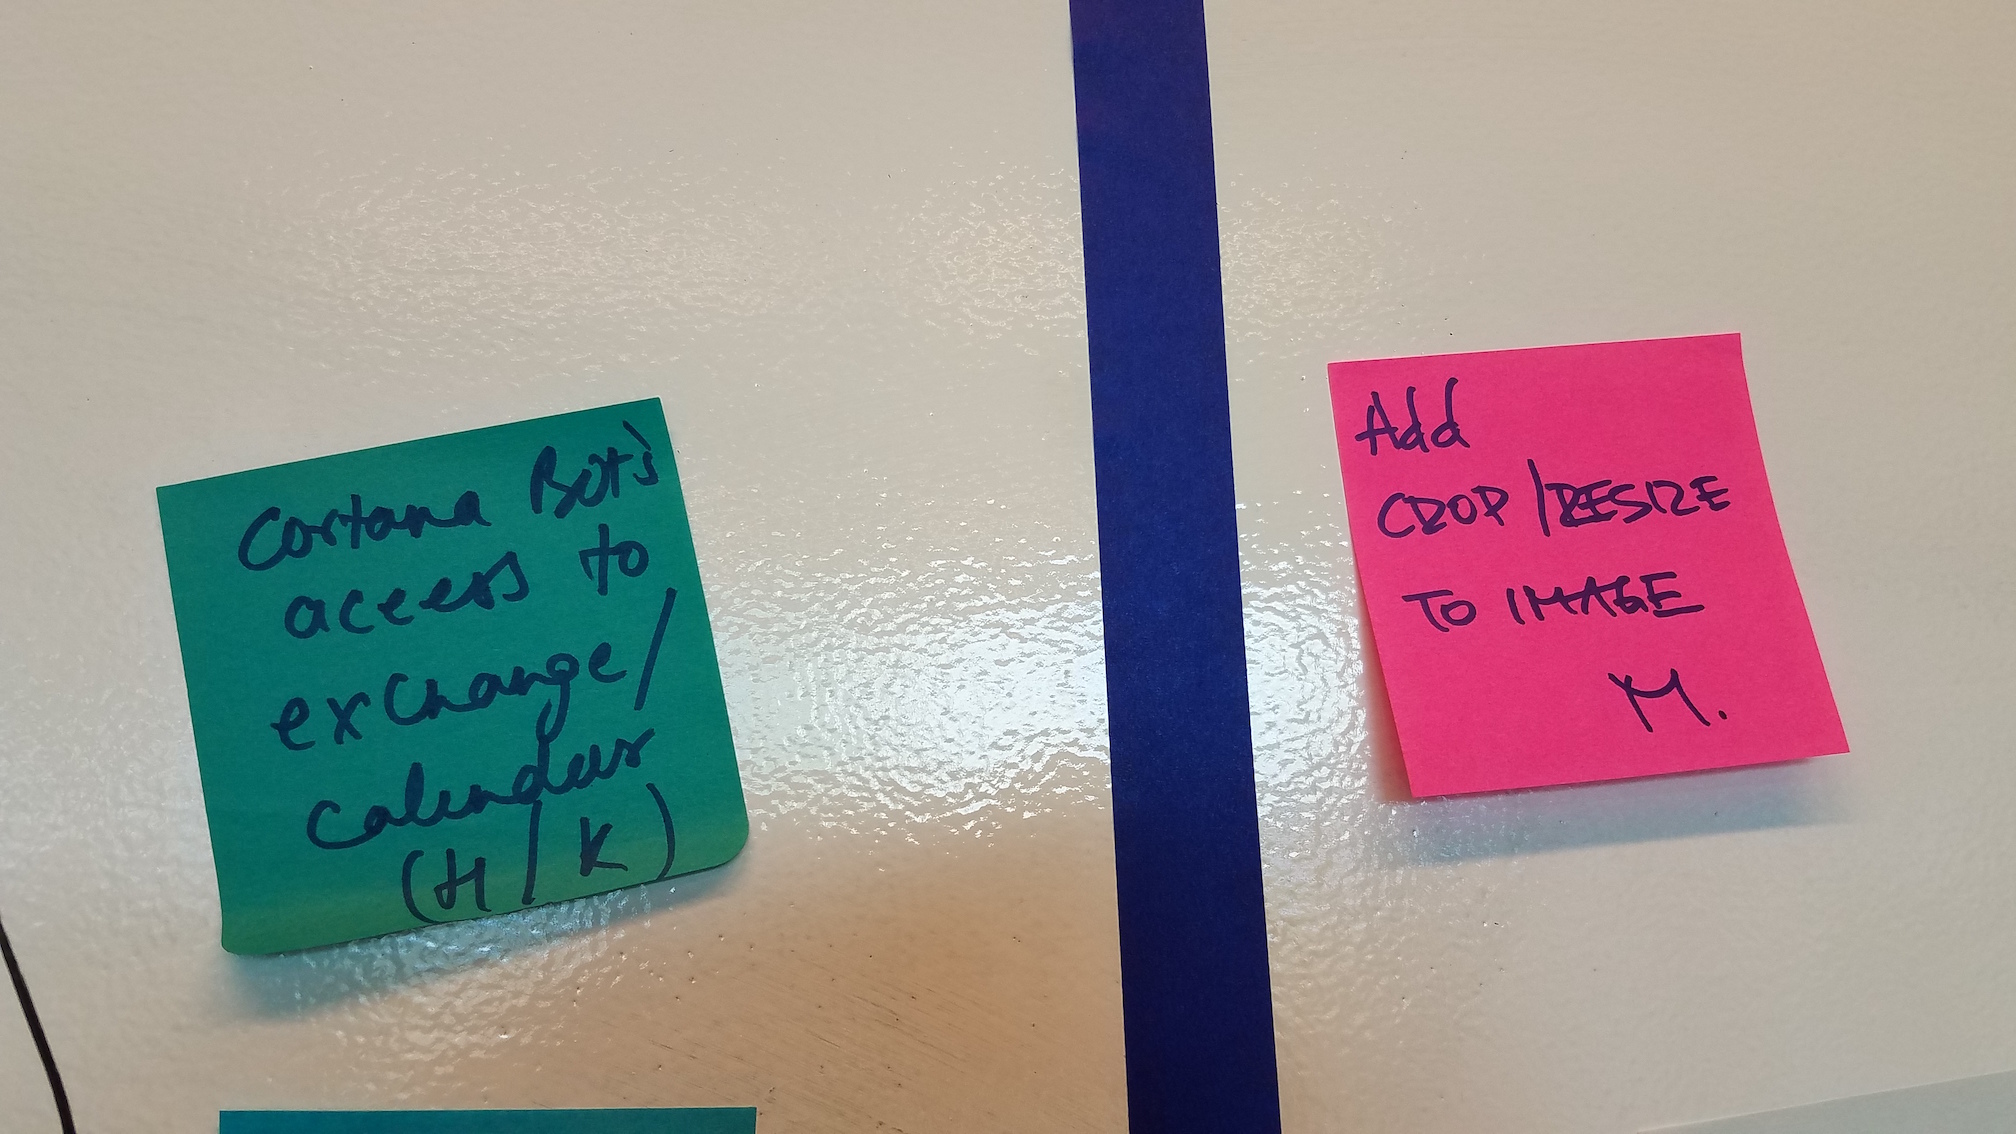 Cortana Bot's
access to
exchange/
calendar
(H/K)
Add
CROP/RESIZE
TO IMAGE
M.